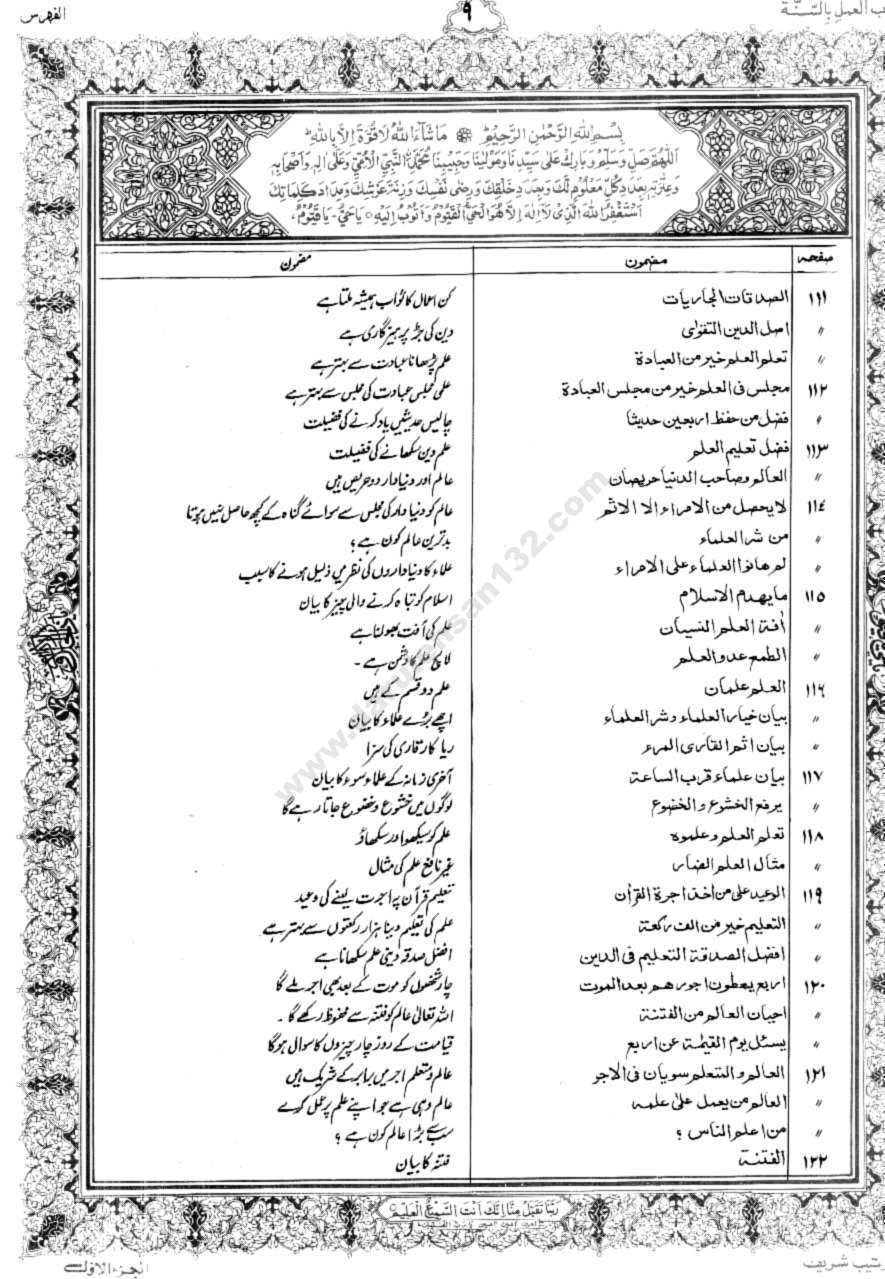 ب العمل بالسنة ٩ الفهرس
بِسْمِ اللهِ الرَّحْمٰنِ الرَّحِيْمِ مَا شَآءَ اللهُ لَا قُوَّةَ اِلَّا بِاللهِ
اَللّٰهُمَّ صَلِّ وَسَلِّمْ وَبَارِكْ عَلٰى سَيِّدِنَا وَمَوْلٰينَا وَحَبِيْبِنَا مُحَمَّدِنِ النَّبِيِّ الْاُمِّيِّ وَعَلٰى اٰلِهٖ وَاَصْحَابِهٖ
وَعِتْرَتِهٖ بِعَدَدِ كُلِّ مَعْلُوْمٍ لَّكَ وَبِعَدَدِ خَلْقِكَ وَرِضٰى نَفْسِكَ وَزِنَةِ عَرْشِكَ وَمِدَادِ كَلِمَاتِكَ
اَسْتَغْفِرُ اللهَ الَّذِيْ لَا اِلٰهَ اِلَّا هُوَ الْحَيُّ الْقَيُّوْمُ وَاَتُوْبُ اِلَيْهِ يَا حَيُّ يَا قَيُّوْمُ
صفحه مضمون مضمون
١١١ الصدقات الجاريات کن اعمال کا ثواب ہمیشہ ملتا ہے
〃 اصل الدين التقوٰى دین کی جڑ پرہیزگاری ہے
〃 تعلم العلم خير من العبادة علم پڑھانا عبادت سے بہتر ہے
١١٢ مجلس فى العلم خير من مجلس العبادة علمی مجلس عبادت کی مجلس سے بہتر ہے
〃 فضل من حفظ اربعين حديثا چالیس حدیثیں یاد کرنے کی فضیلت
١١٣ فضل تعليم العلم علم دین سکھانے کی فضیلت
〃 العالم وصاحب الدنيا حريصان عالم اور دنیا دار دو حریص ہیں
١١٤ لا يحصل من الامراء الا الاثم عالم کو دنیا دار کی مجلس سے سوائے گناہ کے کچھ حاصل نہیں ہوتا
〃 من شر العلماء بدترین عالم کون ہے؟
〃 لم هانوا العلماء على الامراء علماء کا دنیا داروں کی نظر میں ذلیل ہونے کا سبب
١١٥ ما يهدم الاسلام اسلام کو تباہ کرنے والی چیز کا بیان
〃 اٰفة العلم النسيان علم کی آفت بھولنا ہے
〃 الطمع عدو العلم لالچ علم کا دشمن ہے۔
١١٦ العلم علمان علم دو قسم کے ہیں
〃 بيان خيار العلماء وشر العلماء اچھے بڑے علماء کا بیان
〃 بيان اثم القارى المرء ریا کار قاری کی سزا
١١٧ بيان علماء قرب الساعة آخری زمانہ کے علماء سوء کا بیان
〃 يرفع الخشوع و الخضوع لوگوں میں خشوع و خضوع جاتا رہے گا
١١٨ تعلم العلم و علموه علم کو سیکھو اور سکھاؤ
〃 مثال العلم الضار غیر نافع علم کی مثال
١١٩ الوعيد على من اخذ اجرة القراٰن تعلیم قرآن پہ اجرت لینے کی وعید
〃 التعليم خير من الف ركعة علم کی تعلیم دینا ہزار رکعتوں سے بہتر ہے
〃 افضل الصدقة التعليم فى الدين افضل صدقہ دینی علم سکھانا ہے
١٢٠ اربع يعطون اجورهم بعد الموت چار شخصوں کو موت کے بعد بھی اجر ملے گا
〃 احيان العالم من الفتنة اللہ تعالیٰ عالم کو فتنہ سے محفوظ رکھے گا۔
〃 يسئل يوم القيٰمة عن اربع قیامت کے روز چار چیزوں کا سوال ہوگا
١٢١ العالم و المتعلم سويان فى الاجر عالم و متعلم اجر میں برابر کے شریک ہیں
〃 العالم من يعمل علىٰ علمه عالم وہی ہے جو اپنے علم پر عمل کرے
〃 من اعلم الناس ؟ سب سے بڑا عالم کون ہے؟
١٢٢ الفتنة فتنہ کا بیان
رَبَّنَا تَقَبَّلْ مِنَّا اِنَّكَ اَنْتَ السَّمِيْعُ الْعَلِيْمُ
تيب شريف الجزء الاول
www.darulehsan132.com